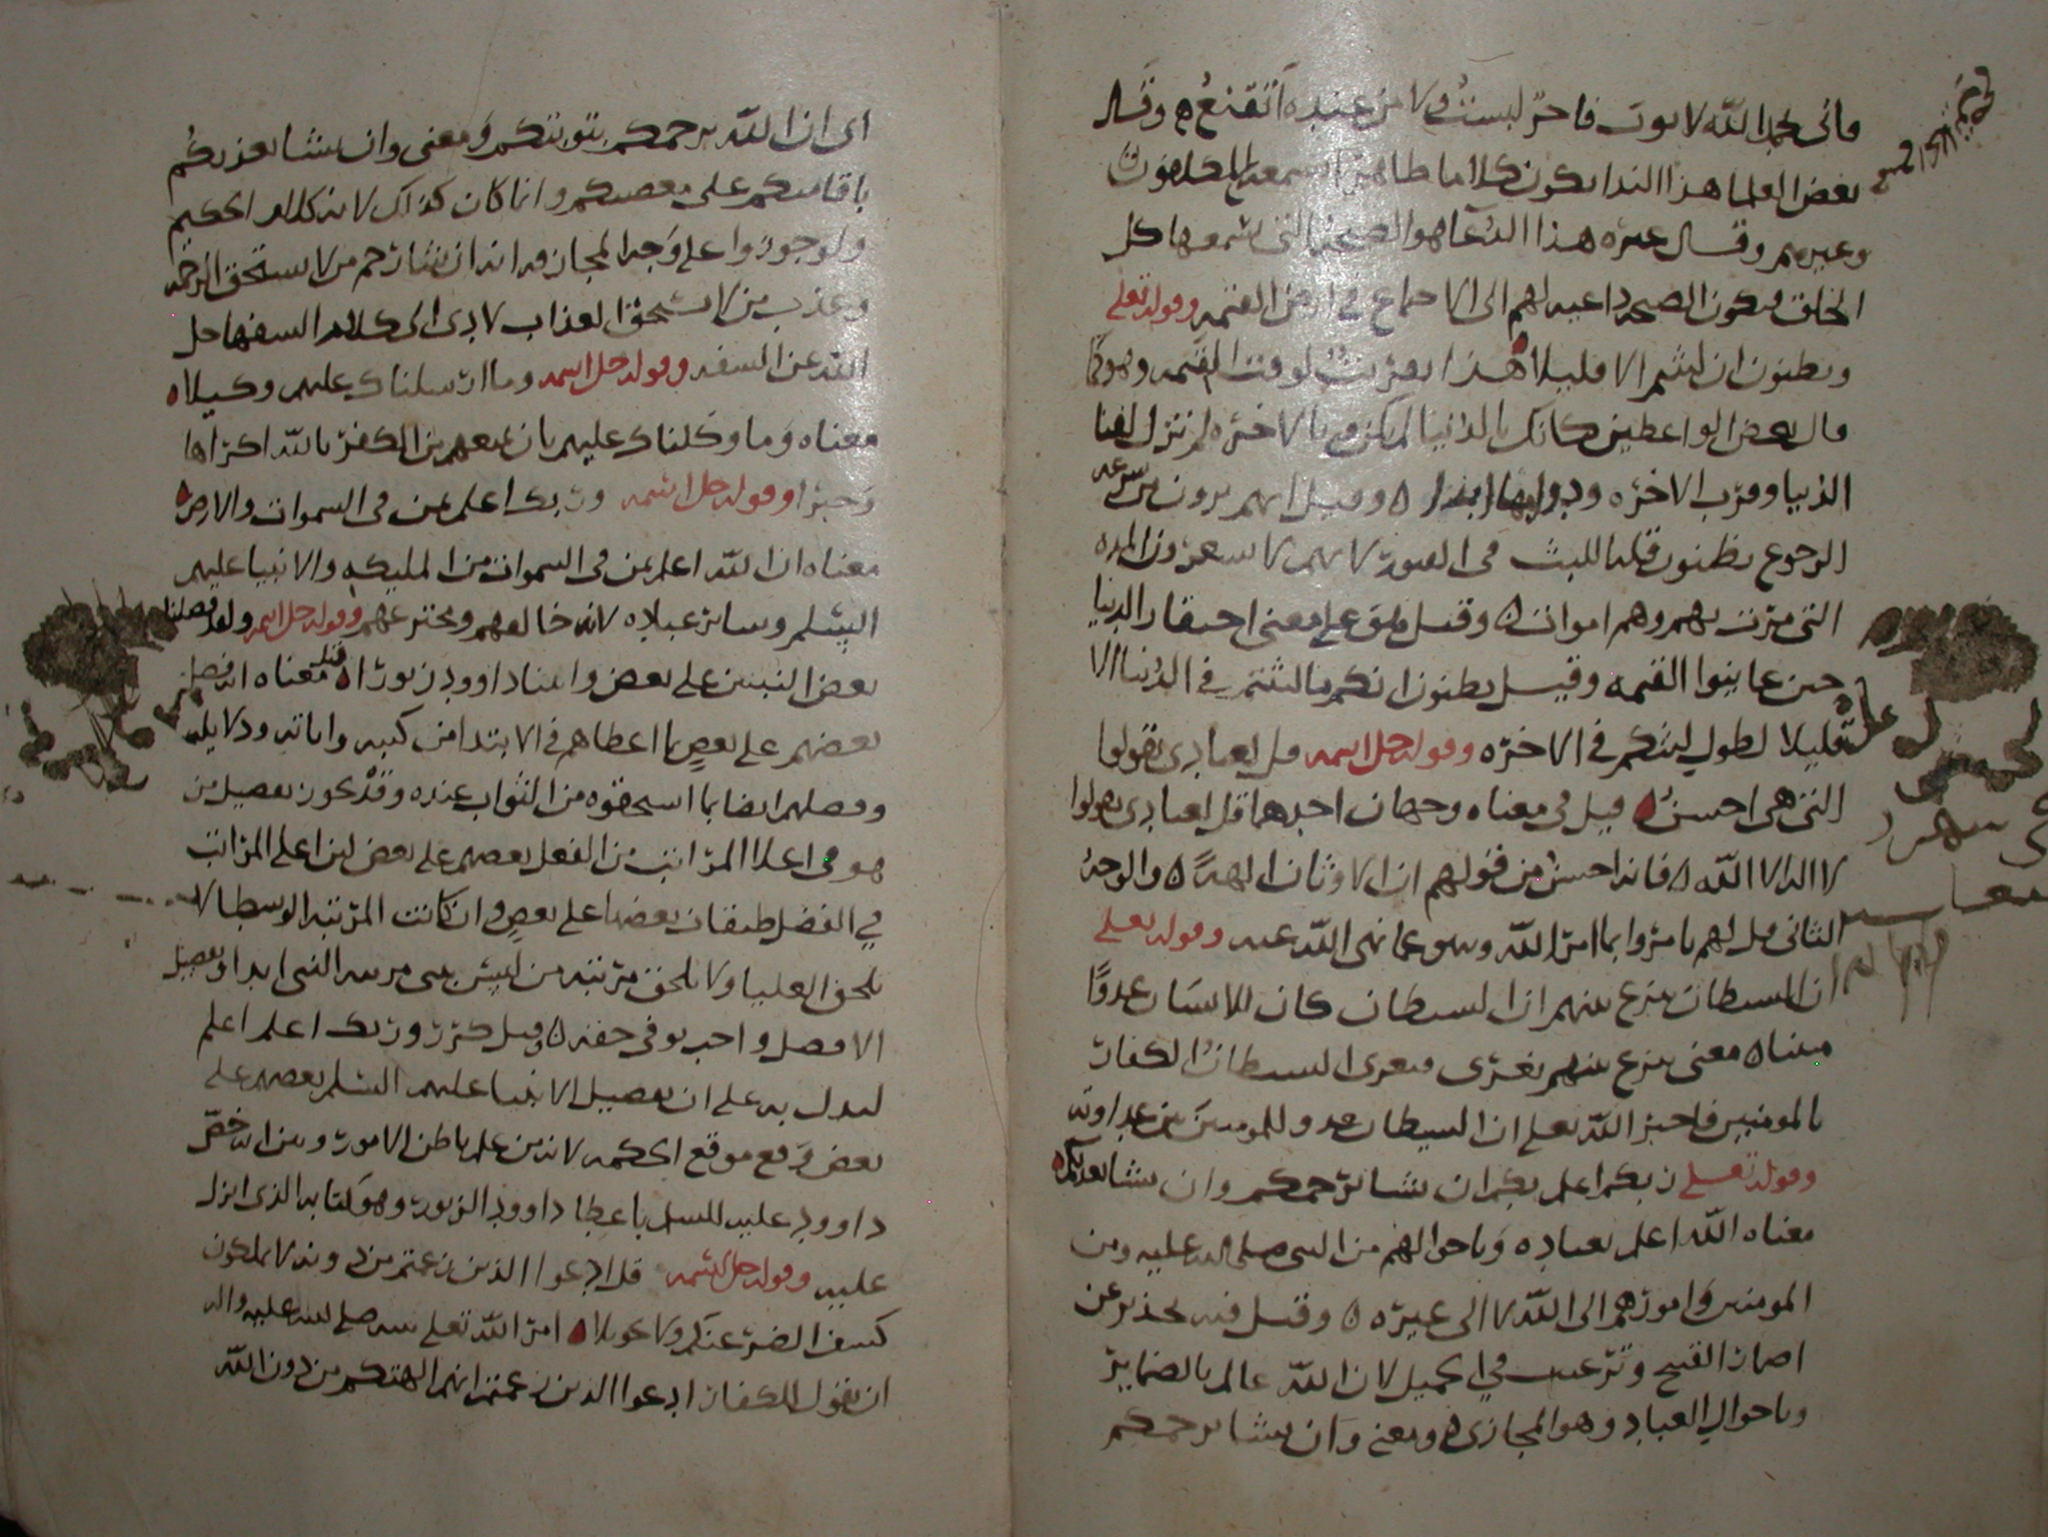 فاني بحمد الله لا ثوب فاجر لبست ولا من غدرة أتقنع ه وقال
بعض العلما هذا الندا يكون كلاما طاهرا
وغيرهم وقال غيره هذا الدعا هو الصيحة التي يسمعها كل
الخلق فيكون الصيحة داعية لهم الى الاجتماع في ارض القيمة وقوله تعلى
ويظنون ان لبثتم الا قليلا هذا لوقت القيمة وهو كما
قال بعض الواعظين كانك بالدنيا لم تكن وبالاخرة لم تزل لفنا
الدنيا وقرب الاخرة ابدا ه وقيل انهم يرون من سرعة
الرجوع يظنون قلة اللبث في القبور لانهم لا يشعرون المدة
التي مرت بهم وهم اموات ه وقيل على معنى احتقار الدنيا
حين عاينوا القيمة وقيل يظنون انكم ما لبثتم في الدنيا الا
قليلا لطول لبثكم في الاخرة وقوله جل اسمه قل لعبادي يقولوا
التي هي احسن قيل في معناه وجهان احدهما قل لعبادي يقولوا
لا اله الا الله ه فانه احسن من قولهم ان الاوثان الهة ه والوجه
الثاني قل لهم يامروا بما امر الله وينهوا عما نهى الله عنه وقوله تعلى
ان الشيطان ينزغ بينهم ان الشيطان كان للانسان عدوا
معناه معنى ينزغ بينهم يغري فيغري الشيطان الكفار
بالمومنين فاخبر الله تعلى ان الشيطان عدو للمومنين بين عداوته
وقوله تعلى ربكم اعلم بكم ان يشا يرحمكم وان يشا يعذبكم
معناه الله اعلم بعباده وباحوالهم من النبي صلى الله عليه ومن
المومنين وامورهم الى الله لا الى غيره ه وقيل فيه تحذير عن
اضمار القبيح وترغيب في الجميل لان الله عالم بالضماير
وباحوال العباد وهو المجازي ه ومعنى وان يشا يرحمكم
اي ان الله يرحمكم بتوبتكم ومعنى وان يشا يعذبكم
باقامتكم على معصيتكم وانما كان كذلك لانه كلام الحكيم
ولو جوزوا على وجه المجاز انه ان يشا يرحم من لا يستحق الرحمة
ويعذب من لا يستحق العذاب لادى الى كلام السفها جل
الله عن السفه وقوله جل اسمه وما ارسلناك عليهم وكيلا ه
معناه وما وكلناك عليهم بان تمنعهم من الكفر بالله اكراها
وجبرا وقوله جل اسمه وربك اعلم بمن في السموات والارض
معناه ان الله اعلم بمن في السموات من المليكة والانبيا عليهم
السلم وساير عباده لانه خالقهم ومخترعهم وقوله جل اسمه ولقد فضلنا
بعض النبيين على بعض واتينا داوود زبورا ه قيل معناه انه فضل
بعضهم على بعض بما اعطاهم في الابتدا من كتبه واياته ودلايله
وفضلهم ايضا بما استحقوه من الثواب عنده وقد يكون تفضيل من
هو في اعلا المراتب من الفعل بعضهم على بعض لان اعلى المراتب
في الفضل طبقات بعضها على بعض وان كانت المرتبة الوسطا لا
تلحق العليا ولا تلحق مرتبة من ليس بنبي مرتبة النبي ابدا وتفضيل
الافضل واجب يوفي حقه ه وقيل كرر وربك اعلم اعلم
ليدل به على ان تفضيل الانبيا عليهم السلم بعضهم على
بعض وقع موقع الحكمة لانه من علم باطن الامور وبين انه خص
داوود عليه السلم باعطا داوود الزبور وهو كتابه الذي انزل
عليه وقوله جل اسمه قل ادعوا الذين زعمتم من دونه لا يملكون
كشف الضر عنكم ولا تحويلا ه امر الله تعلى نبيه صلى الله عليه واله
ان يقول للكفار ادعوا الذين زعمتم انهم الهتكم من دون الله